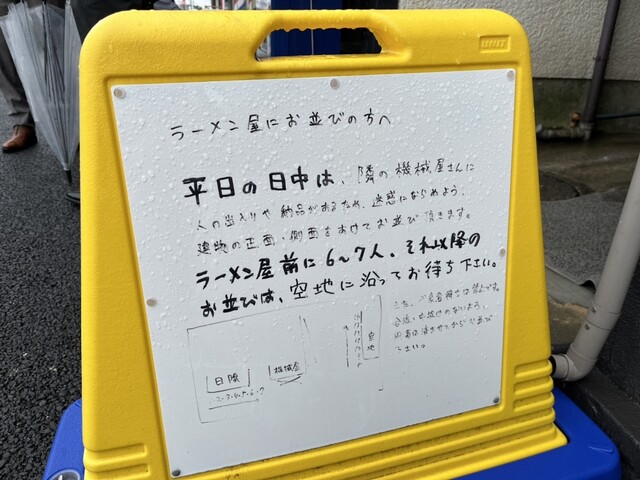 UNIT
ラーメン屋にお並びの方へ
平日の日中は、隣の機械屋さんに
人の出入りや納品があるため、迷惑にならぬよう、
建物の正面・側面をあけてお並び頂きます。
ラーメン屋前に6〜7人、それ以降の
お並びは、空地に沿ってお待ち下さい。
のないよう、
用事は済ませてからお並び
下さい。
日陰
機械屋
空地